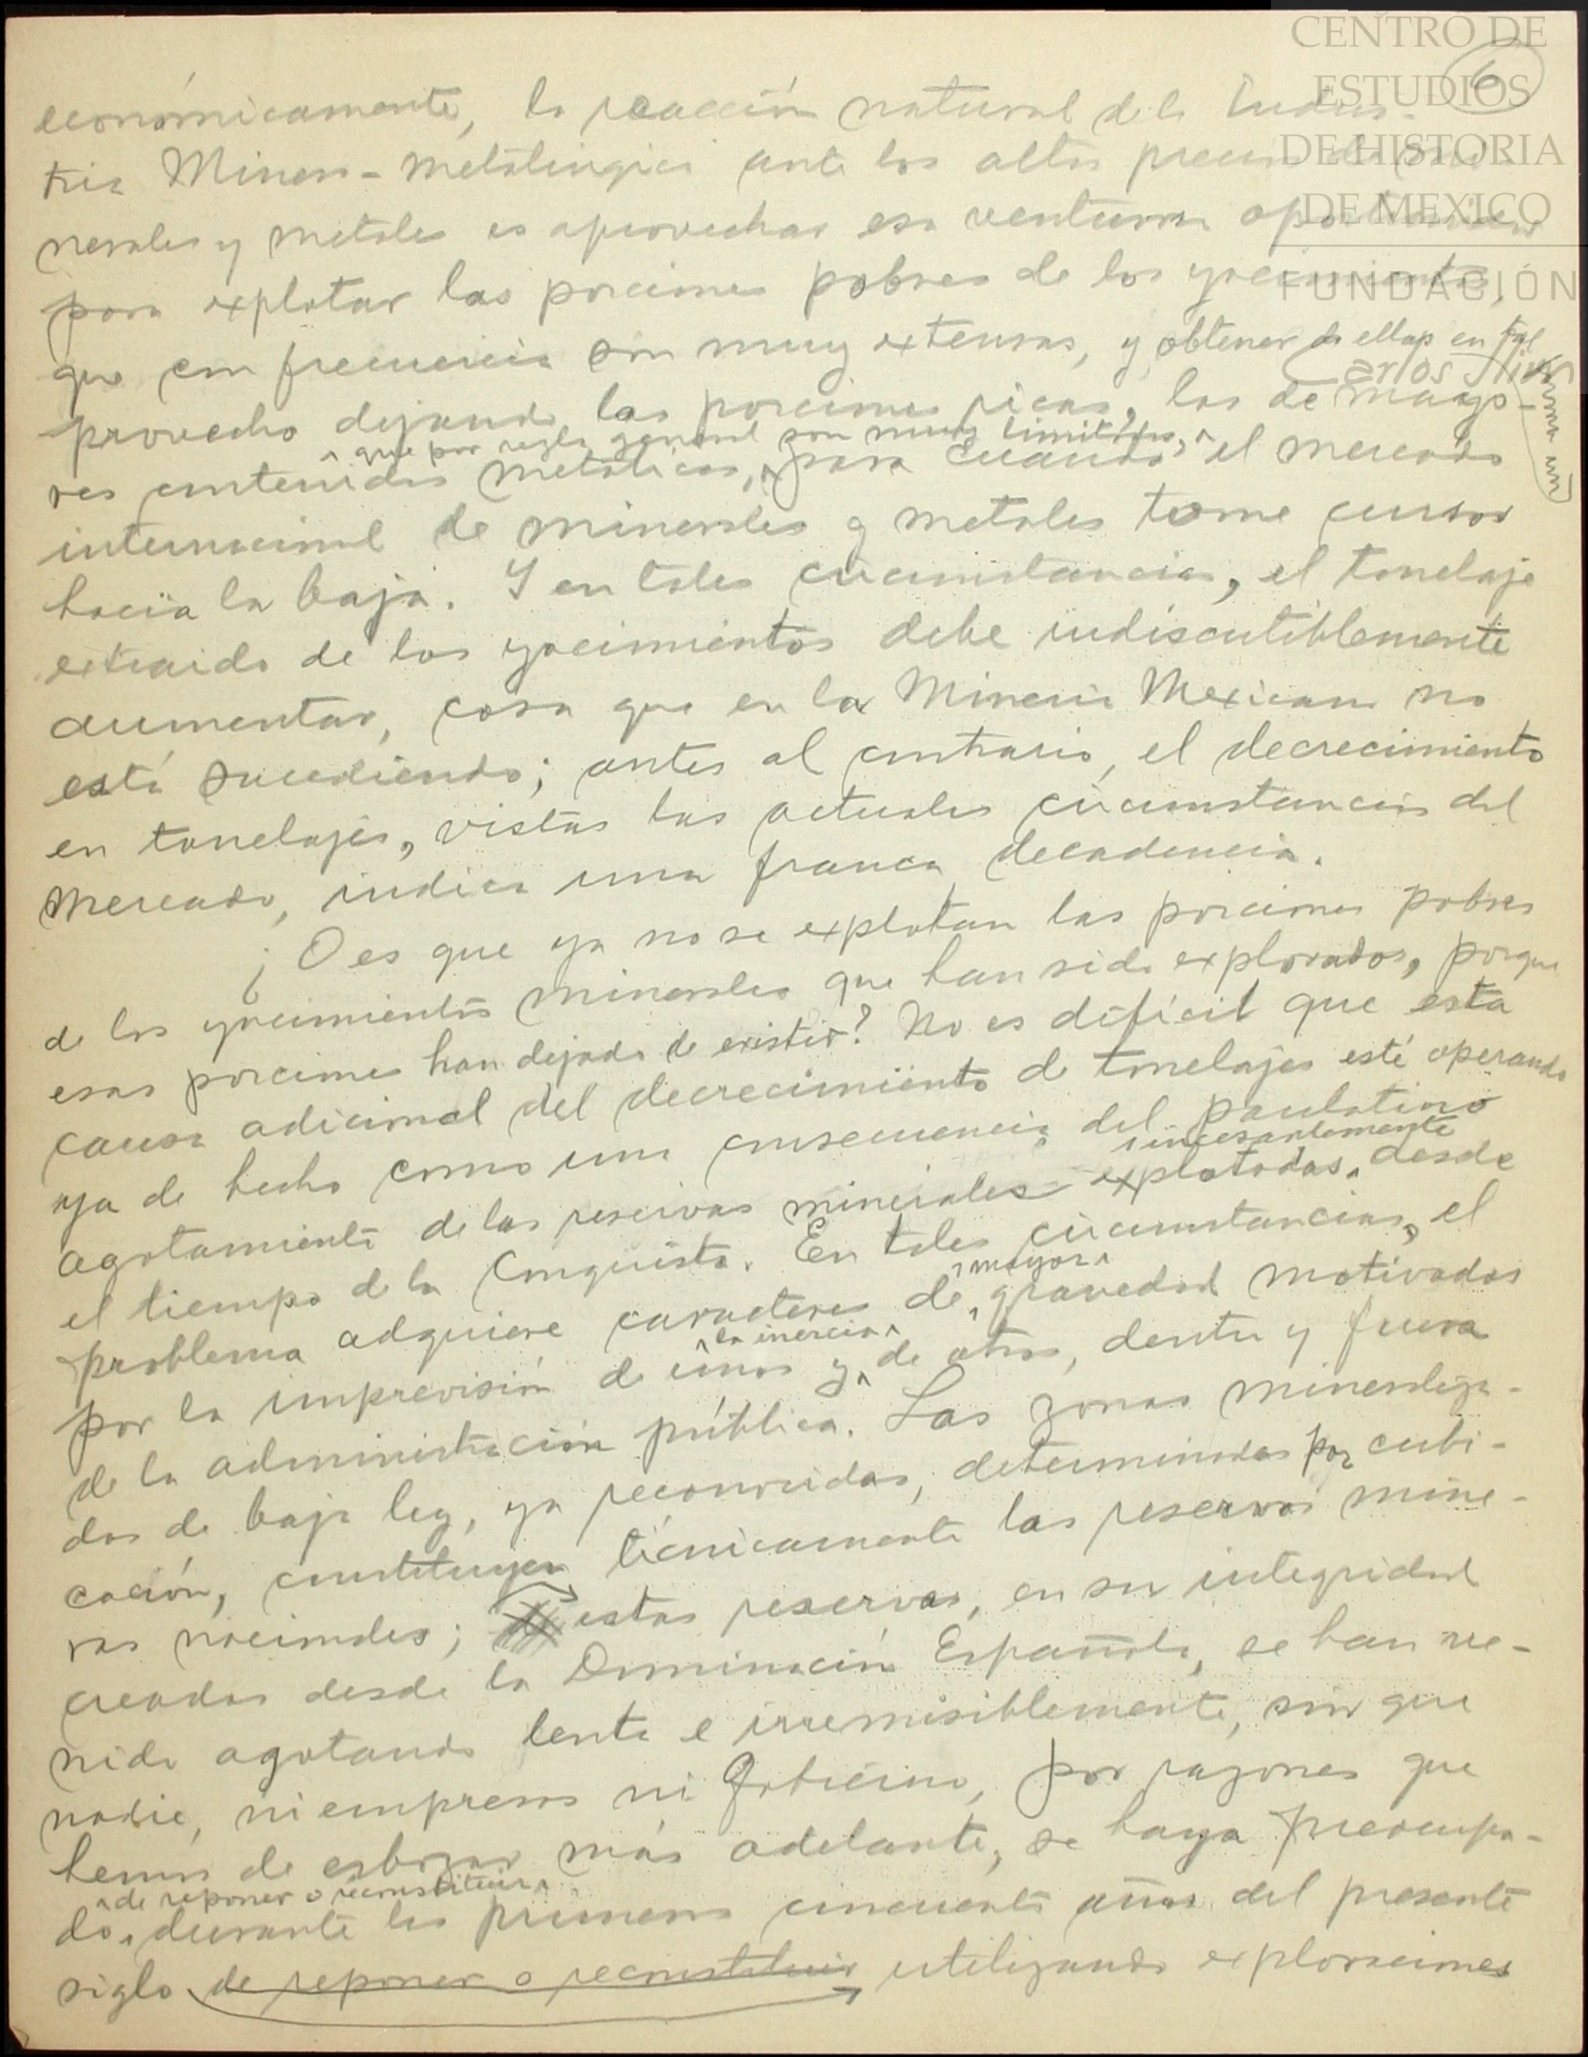 CENTRO DE
ESTUDIOS
DE HISTORIA
DE MEXICO
FUNDACIÓN
Carlos Slim
6
económicamente, la reacción natural de la Indus-
tria Minero-metalúrgica ante los altos precios de mi-
nerales y metales es aprovechar esa ventura oportunidad
para explotar las porciones pobres de los yacimientos,
que con frecuencia son muy extensas, y obtener de ellas en tal
forma un
provecho dejando las porciones ricas, las de mayo-
que por regla general son muy limitadas,
res contenidos metálicos, para cuando el mercado
internacional de minerales y metales tome curso
hacia la baja. Y en tales circunstancias, el tonelaje
extraido de los yacimientos debe indiscutiblemente
aumentar, cosa que en la Mineria Mexicana no
está sucediendo; antes al contrario, el decrecimiento
en tonelajes, vistas las actuales circunstancias del
mercado, indica una franca decadencia.
¿O es que ya no se explotan las porciones pobres
de los yacimientos minerales que han sido explorados, porque
esas porciones han dejado de existir? No es dificil que esta
causa adicional del decrecimiento de tonelajes esté operando
ya de hecho como una consecuencia del paulatino
incesantemente
agotamiento de las reservas minerales explotadas desde
el tiempo de la Conquista. En tales circunstancias, el
mayor
problema adquiere caracteres de gravedad motivados
la inercia
por la imprevisión de unos y de otros, dentro y fuera
de la administración pública. Las zonas mineraliza-
das de baja ley, ya reconocidas, determinadas por cubi-
cación, constituyen técnicamente las reservas mine-
ras nacionales; estas reservas, en su integridad
creadas desde la Dominación Española, se han ve-
nido agotando lenta e irremisiblemente, sin que
nadie, ni empresas ni Gobierno, por razones que
hemos de esbozar más adelante, se haya preocupa-
de reponer o reconstituir
do durante los primeros cincuenta años del presente
siglo de reponer o reconstituir utilizando exploraciones